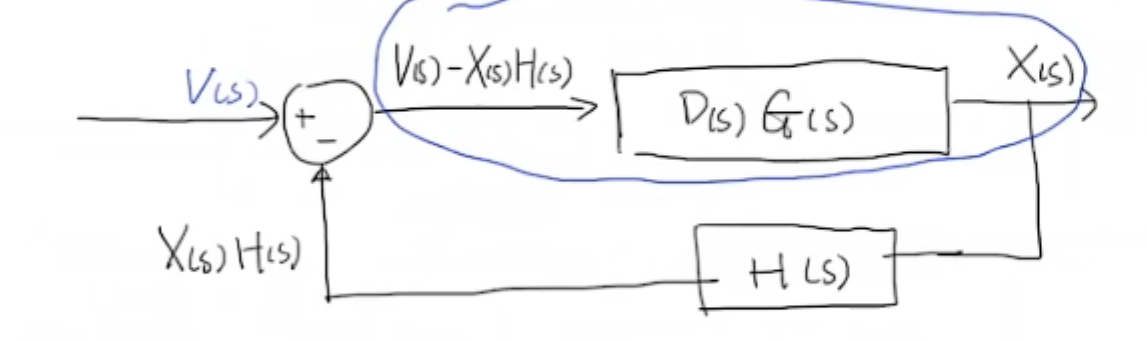 V(s)
+
−
V(s)-X(s)H(s)
D(s) G(s)
X(s)
X(s)H(s)
H(s)